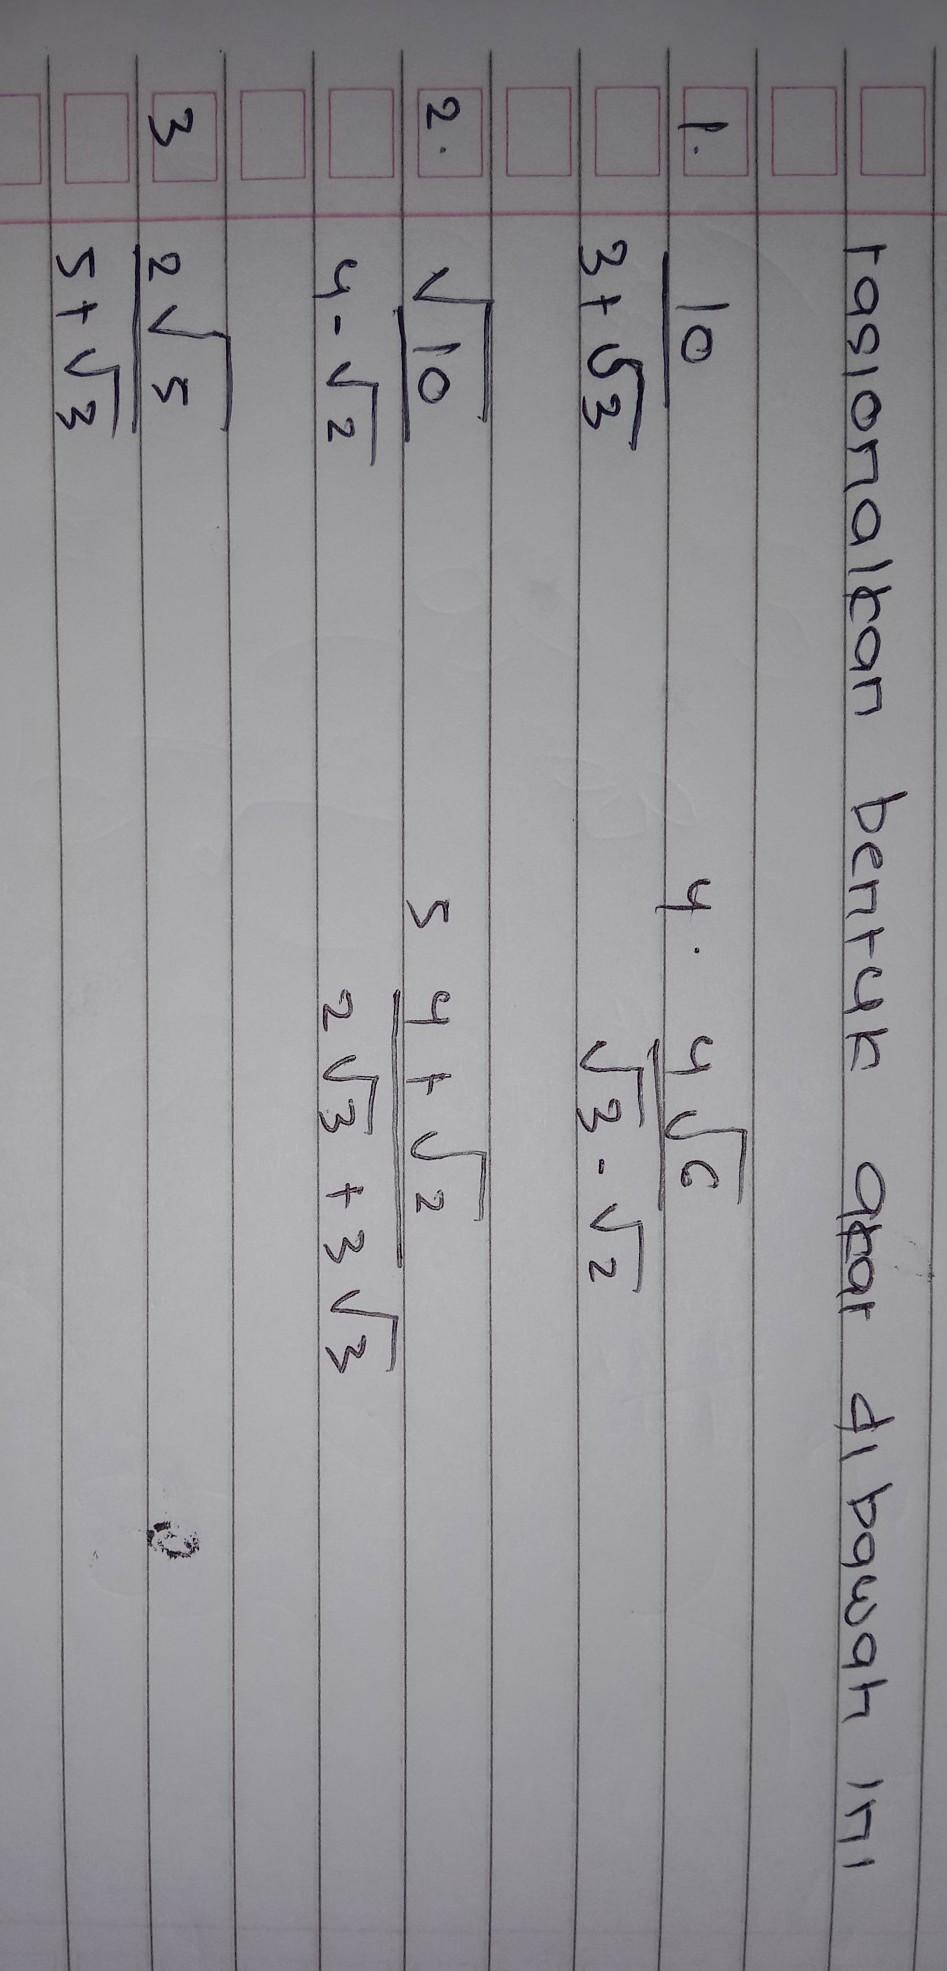 rasionalkan bentuk akar dibawah ini
1. 10 4. 4√6
3+√3 √3-√2
2. √10 5 4+√2
4-√2 2√3+3√3
3 2√5
5+√3